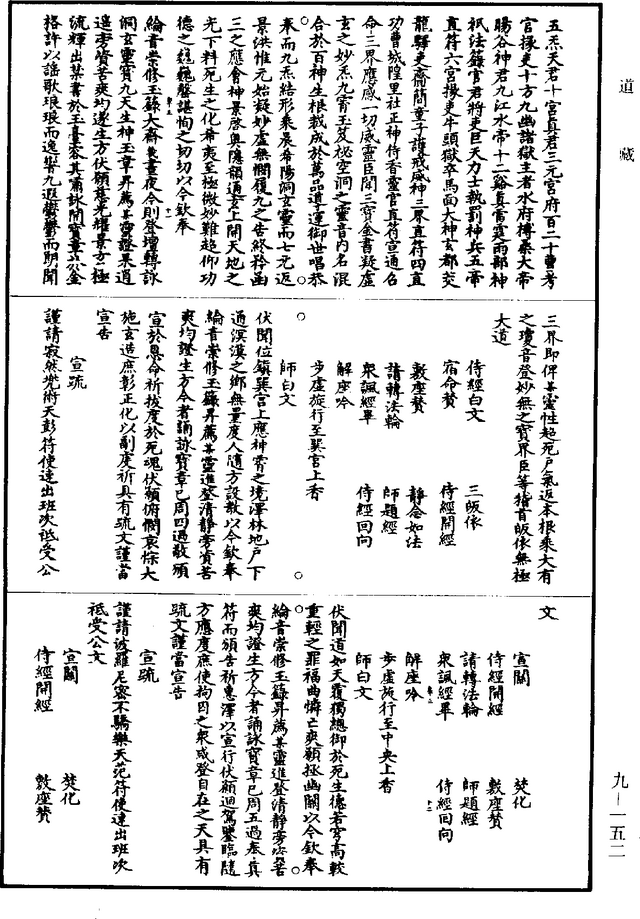 道藏
五炁天君十宮真君三元宮府百二十曹考
官掾吏十方九幽諸獄主者水府搏桑大帝
暘谷神君九江水帝十二谿真雷霆雨部神
祇法籙官君將吏巨天力士執罰神兵五帝
直符六宮掾吏牛頭獄卒馬面大神玄都交
龍驛吏齋簡童子護戒威神三界直符四直
功曹城隍里社正神侍香靈官真符宣通召
命三界應感一切威靈臣聞三寶金書凝虛
玄之妙炁九霄玉笈秘空洞之靈音內名混
合於百神生根載成於萬品道運御世唱恭
奉而九炁結形乘晨希陽洞玄靈而七元返
景洪惟元始凝妙虛無憫履九之告終矜函
三之應會神景啓奧隱韻通玄上開天地之
光下料死生之化希夷至極微妙難超仰功
德之巍巍罄諶恂之切切以今欽奉
綸音崇修玉籙大齋晝夜令則登壇轉詠
洞玄靈寶九天生神玉章昇薦某靈證果逍
遙旁資苦爽均遂生方伏願慈光耀景玄極
流輝出某書於玉臺容其肅詠開寶章於金
格許以謠歌琅琅而逸響九遐鬱鬱而朗聞
三界即俾某靈性超死戶氣返本根乘大有
之瓊音登妙無之寶界臣等稽首皈依無極
大道
侍經白文　三皈依
宿命贊　侍經開經
敷座贊　靜念如法
請轉法輪　師題經
衆諷經畢　侍經回向
解座吟
步虛旋行至巽宮上香
師白文
伏聞位鎮巽宮上應神霄之境澤林地戶下
通溟漠之鄉無量度人隨方設教以今欽奉
綸音崇修玉籙昇薦某靈進登清靜旁資苦
爽均證生方今者誦詠寶章已周四過敬頒
宣於恩命祈拔度於死魂伏願俯憫哀悰大
施玄造庶彰正化以副度祈具有疏文謹當
宣告
宣疏
謹請寂然兜術天彭符使速出班次祗受公
文
宣關　焚化
侍經開經　敷座贊
請轉法輪　師題經
衆諷經畢　侍經回向
解座吟
步虛旋行至中央上香
師白文
伏聞道如天覆獨總御於死生德若穹高較
重輕之罪福曲憐亡爽願拯幽關以今欽奉
綸音崇修玉籙昇薦某靈進登清靜旁資苦
爽均證生方今者誦詠寶章已周五過奉真
符而頒告祈惠澤以宣行伏願迴駕鑒臨隨
方應度庶使拘囚之衆咸登自在之天具有
疏文謹當宣告
宣疏
謹請波羅尼密不驕樂天范符使速出班次
祗受公文
宣關　焚化
侍經開經　敷座贊
九—一五二